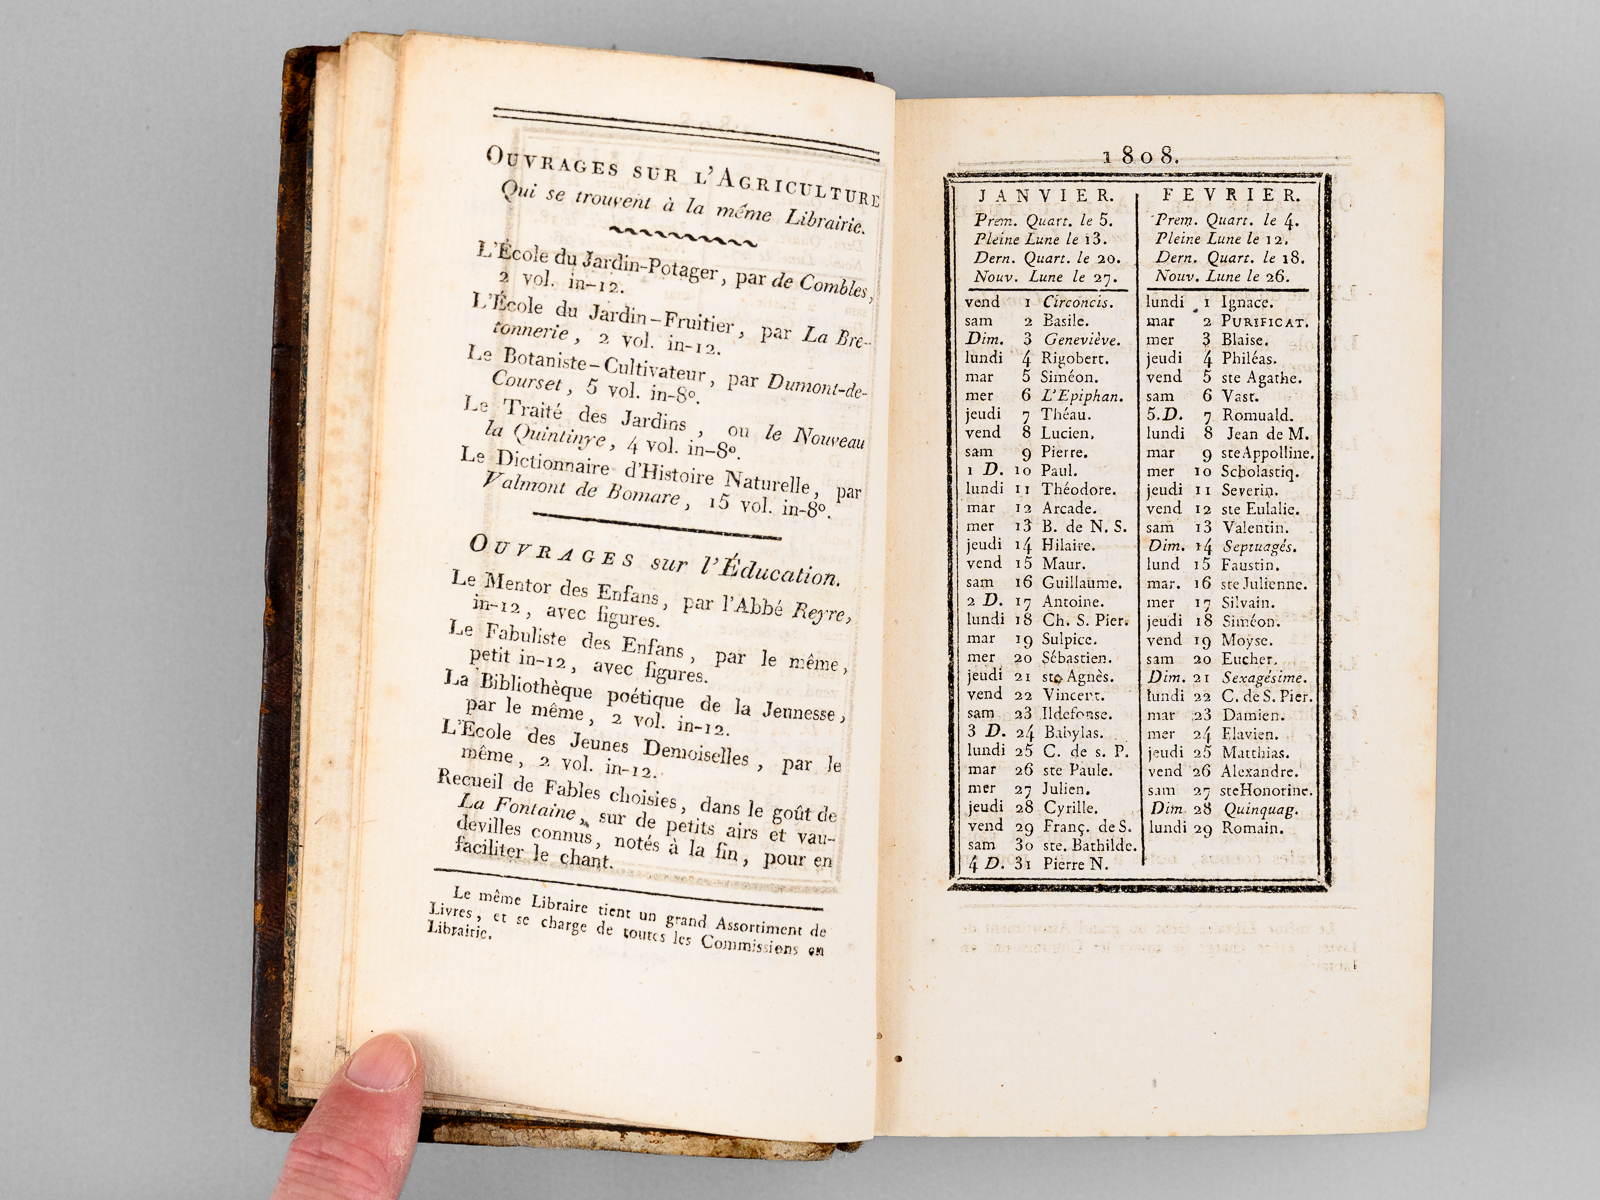 OUVRAGES SUR L'AGRICULTURE
Qui se trouvent à la même Librairie.
L'École du Jardin-Potager, par de Combles,
2 vol. in-12.
L'École du Jardin-Fruitier, par La Bre-
tonnerie, 2 vol. in-12.
Le Botaniste-Cultivateur, par Dumont-de-
Courset, 5 vol. in-8º.
Le Traité des Jardins, ou le Nouveau
la Quintinye, 4 vol. in-8º.
Le Dictionnaire d'Histoire Naturelle, par
Valmont de Bomare, 15 vol. in-8º.
OUVRAGES sur l'Éducation.
Le Mentor des Enfans, par l'Abbé Reyre,
in-12, avec figures.
Le Fabuliste des Enfans, par le même,
petit in-12, avec figures.
La Bibliothèque poétique de la Jeunesse,
par le même, 2 vol. in-12.
L'École des Jeunes Demoiselles, par le
même, 2 vol. in-12.
Recueil de Fables choisies, dans le goût de
La Fontaine, sur de petits airs et vau-
devilles connus, notés à la fin, pour en
faciliter le chant.
Le même Libraire tient un grand Assortiment de
Livres, et se charge de toutes les Commissions en
Librairie.
1808.
JANVIER.
Prem. Quart. le 5.
Pleine Lune le 13.
Dern. Quart. le 20.
Nouv. Lune le 27.
vend 1 Circoncis.
sam 2 Basile.
Dim. 3 Geneviève.
lundi 4 Rigobert.
mar 5 Siméon.
mer 6 L'Epiphan.
jeudi 7 Théau.
vend 8 Lucien.
sam 9 Pierre.
1 D. 10 Paul.
lundi 11 Théodore.
mar 12 Arcade.
mer 13 B. de N. S.
jeudi 14 Hilaire.
vend 15 Maur.
sam 16 Guillaume.
2 D. 17 Antoine.
lundi 18 Ch. S. Pier.
mar 19 Sulpice.
mer 20 Sébastien.
jeudi 21 ste Agnès.
vend 22 Vincent.
sam 23 Ildefonse.
3 D. 24 Babylas.
lundi 25 C. de s. P.
mar 26 ste Paule.
mer 27 Julien.
jeudi 28 Cyrille.
vend 29 Franç. de S.
sam 30 ste. Bathilde.
4 D. 31 Pierre N.
FEVRIER.
Prem. Quart. le 4.
Pleine Lune le 12.
Dern. Quart. le 18.
Nouv. Lune le 26.
lundi 1 Ignace.
mar 2 PURIFICAT.
mer 3 Blaise.
jeudi 4 Philéas.
vend 5 ste Agathe.
sam 6 Vast.
5. D. 7 Romuald.
lundi 8 Jean de M.
mar 9 ste Appolline.
mer 10 Scholastiq.
jeudi 11 Severin.
vend 12 ste Eulalie.
sam 13 Valentin.
Dim. 14 Septuagés.
lund 15 Faustin.
mar. 16 ste Julienne.
mer 17 Silvain.
jeudi 18 Siméon.
vend 19 Moyse.
sam 20 Eucher.
Dim. 21 Sexagésime.
lundi 22 C. de S. Pier.
mar 23 Damien.
mer 24 Flavien.
jeudi 25 Matthias.
vend 26 Alexandre.
sam 27 ste Honorine.
Dim 28 Quinquag.
lundi 29 Romain.